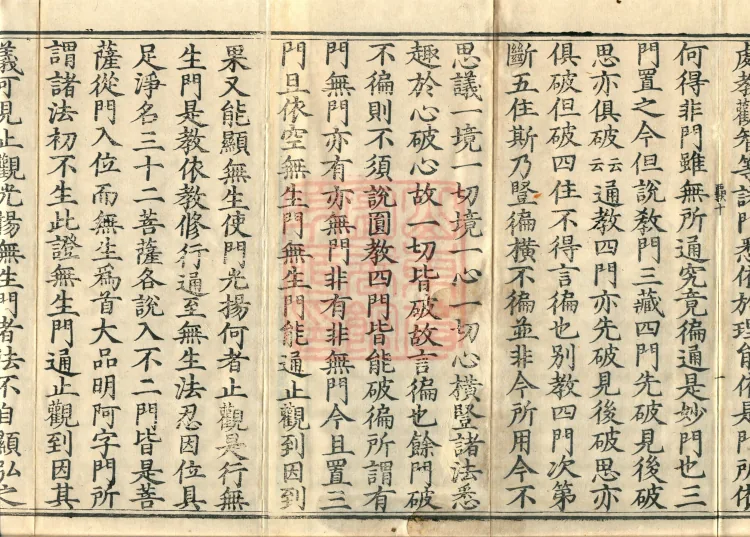 處教觀智等諸門悉依於理能依是門所依
何得非門雖無所通究竟徧通是妙門也三
門置之今但說教門三藏四門先破見後破
思亦俱破云云通教四門亦先破見後破思亦
俱破但破四住不得言徧也別教四門次第
斷五住斯乃豎徧橫不徧並非今所用今不
思議一境一切境一心一切心橫豎諸法悉
趣於心破心故一切皆破故言徧也餘門破
不徧則不須說圓教四門皆能破徧所謂有
門無門亦有亦無門非有非無門今且置三
門且依空無生門無生門能通止觀到因到
果又能顯無生使門光揚何者止觀是行無
生門是教依教修行通至無生法忍因位具
足淨名三十二菩薩各說入不二門皆是菩
薩從門入位而無生爲首大品明阿字門所
謂諸法初不生此證無生門通止觀到因其
義可見止觀光揚無生門者法不自顯弘之